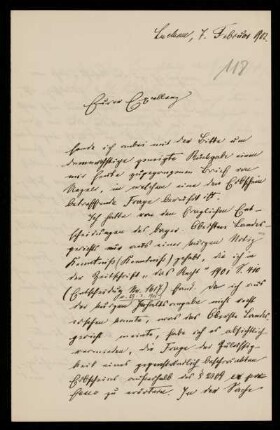 Luckau, 7. Februar 1902.
118
Eurer Excellenz
sende ich anbei mit der Bitte um
demnächstige geneigte Rückgabe einen
mir heute zugegangenen Brief von
Nagel, in welchem eine den Erbschein
betreffende Frage berührt ist.
Ich hatte von den fraglichen Ent-
scheidungen des bayer. Obersten Landes-
gerichts nur aus einer kurzen Notiz
Kenntniß gehabt, die ich in
der Zeitschrift "das Recht" 1901 S.
(Entscheidg No. 1417) fand. Da ich aus
der kurzen Inhaltsangabe nicht recht
ersehen konnte, was das Oberste Landes
gericht meinte, habe ich es absichtlich
vermieden, die Frage der Zulässig-
keit eines gegenständlich beschränkten
Erbscheins außerhalb des § 2369 ex pro
fesso zu erörtern. In der Sache